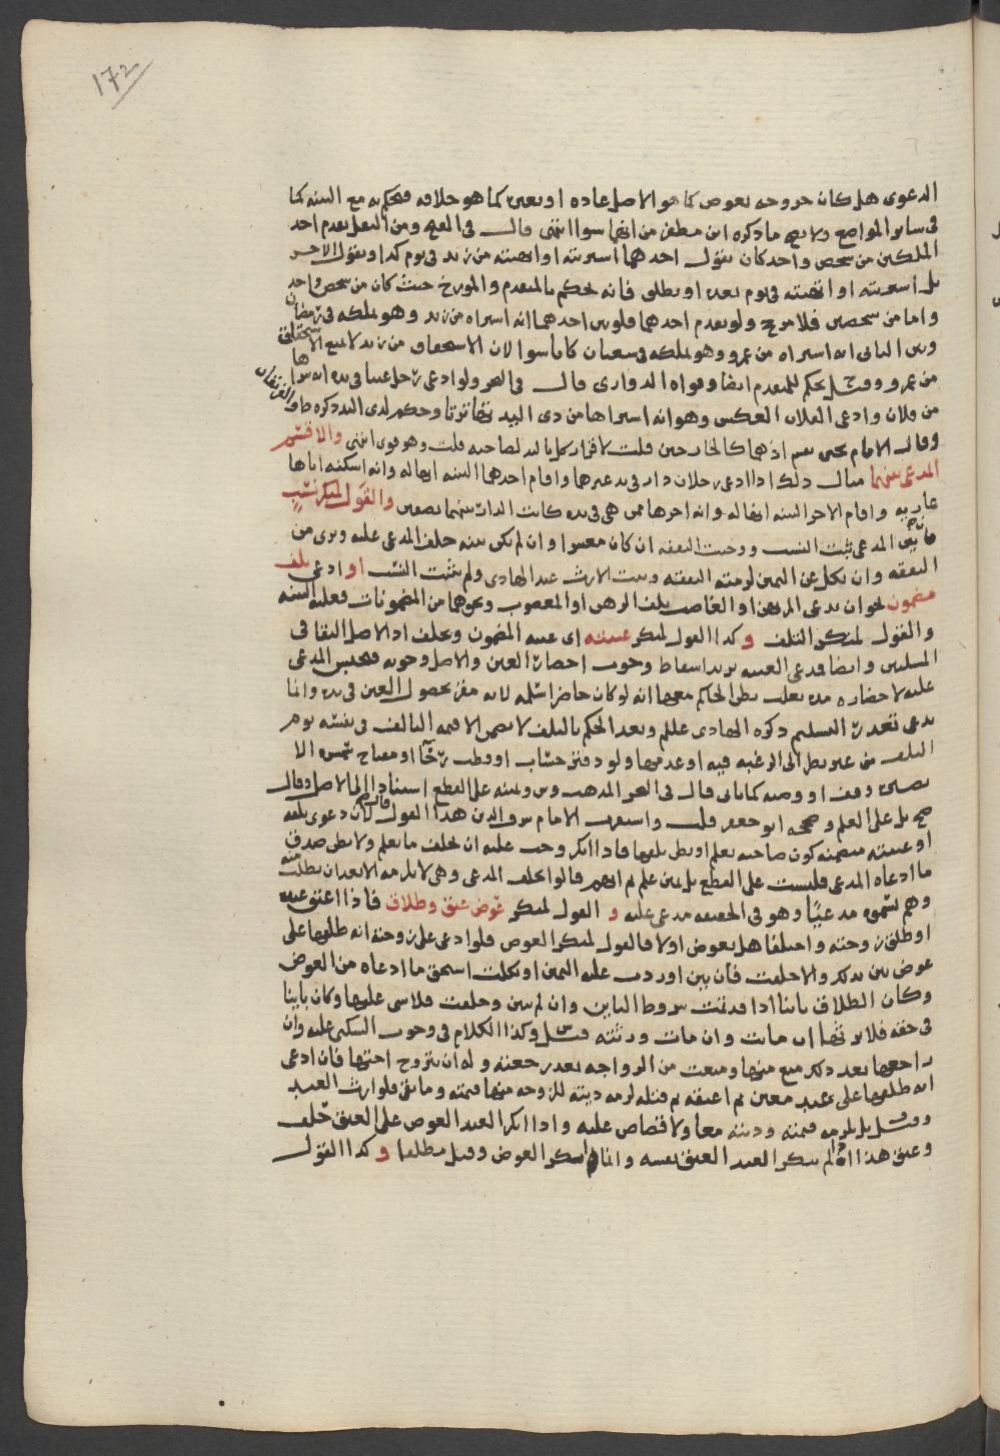 172
الدعوى هل كان خروجه بعوض كما هو الاصل عاده او بغيره كما هو خلافه فيحكم به مع البينه كما
في سائر المواضع ولا يصح ما ذكره ابن مظفر من انهما سوا انتهى قال في الغيث ومن النقل تقدم احد
الملكين من شخص واحد كان يقول احدهما اشتريته او اتهبته من زيد في يوم كذا ويقول الاخر
بل اشتريته او اتهبته في يوم بعده او يطلق فانه يحكم بالمتقدم والمورخ حيث كان من شخص واحد
واما من شخصين فلا فلو تقدم احدهما فلو بين احدهما انه اشتراه من زيد وهو يملكه في رمضان
وبين الثاني انه اشتراه من عمرو وهو يملكه في شعبان كانا سوا لان الاستحقاق من زيد لا يمنع الاستحقاق
من عمرو وقيل يحكم للمتقدم ايضا وقواه الدواري قال في البحر ولو ادعى رجل عينا في يده انه شراها
من فلان وادعى الفلان العكس وهو انه اشتراها من ذي اليد تهاترتا وحكم لذي اليد ذكره
وقال الامام يحيى يقسم اذ هما كالخارجين قلت لاقرار كل باليد لصاحبه قلت وهو قوي انتهى والا قسم
المدعى بينهما مثال ذلك اذا ادعى رجلان دار في يد غيرهما واقام احدهما البينه انها له وانه اسكنه اياها
عاريه واقام الاخر البينه انها له وانه اجرها ممن هي في يده كانت الدار بينهما نصفين والقول لمنكر نسب
المدعي ثبت النسب ووجبت النفقه ان كان معسرا وان لم تكن بينه حلف المدعى عليه وبري من
النفقه وان نكل عن اليمين لزمته النفقه ويثبت الارث عند الهادي ولم يثبت النسب او ادعى تلف
مضمون نحو ان يدعي المرتهن او الغاصب تلف الرهن او المغصوب ونحوهما من المضمونات فعليه البينه
والقول لمنكر التلف وكذا القول لمنكر غيبته اي غيبه المضمون ويحلف اذ الاصل البقا في
المسلمين وايضا فمدعي الغيبه يريد اسقاط وجوب احضار العين والاصل وجوبه فيحبس المدعى
عليه لاحضاره مده يغلب بظن الحاكم معها انه لو كان حاضرا سلمه لانه مقر بحصول العين في يده وانما
يدعي تعذر التسليم ذكره الهادي عليلم وبعد الحكم بالتلف لا يضمن الا قيمه التالف في نفسه يوم
التلف من غير نظر الى الرغبه فيه او عدمها ولو دفتر حساب او قطب رحا او مفتاح شمس الا
صح بل على العلم وصححه ابو جعفر قلت واستقربه الامام شرف الدين هذا القول قال لان دعوى تلفه
او غيبته متضمنه كون صاحبه يعلم او يظن تلفها فاذا انكر وجب عليه ان يحلف ما يعلم ولا يظن صدق
ما ادعاه المدعي فليست على القطع بل يمين علم ثم انهم قالوا يحلف المدعي وهي لا تلزمه الا بعد ان يطلب منه
وهم يسموه مدعيا وهو في الحقيقه مدعى عليه و القول لمنكر عوض عتق وطلاق فاذا اعتق عبده
او طلق زوجته واختلفا هل بعوض او لا فالقول لمنكر العوض فلو ادعى على زوجته انه طلقها على
عوض بين بذلك والا حلفت فان بين او ردت عليه اليمين او نكلت استحق ما ادعاه من العوض
وكان الطلاق باينا اذا قد تمت شروط الباين وان لم يبين وحلفت فلا شي عليها وكان باينا
في حقه فلا يرثها ان ماتت وان مات ورثته قيل س وكذا الكلام في وجوب السكنى عليه وان
راجعها بعد ذلك منع منها ومنعت من الزواجه بعد رجعته وله ان يتزوج اختها فان ادعى
انه طلقها على عبد معين ثم اعتقه ثم قتله لزمه ديته للزوجه منها قيمته وما بقي فلوارث العبد
وقيل بل يلزمه قيمته وديته معا ولا قصاص عليه واذا انكر العبد العوض على العتق حلف
وعتق هذا اذا لم ينكر العبد العتق نفسه وانما انكر العوض وقيل مطلقا وكذا القول